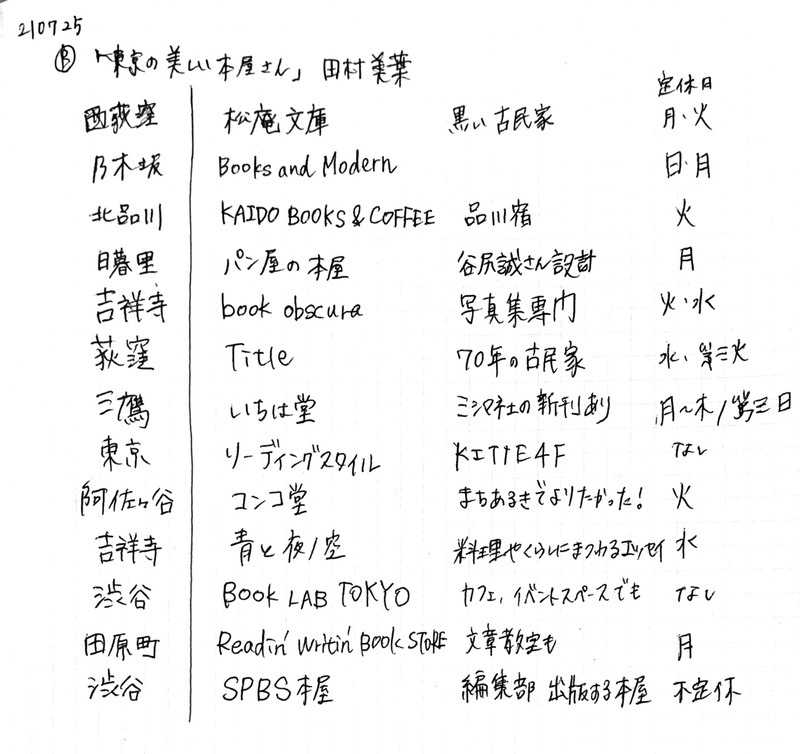 210725
Ⓑ 「東京の美しい本屋さん」 田村美葉
定休日
西荻窪 松庵文庫 黒い古民家 月・火
乃木坂 Books and Modern 日・月
北品川 KAIDO BOOKS & COFFEE 品川宿 火
日暮里 パン屋の本屋 谷尻誠さん設計 月
吉祥寺 book obscura 写真集専門 火・水
荻窪 Title 70年の古民家 水、第三火
三鷹 いちは堂 ミシマ社の新刊あり 月〜木/第三日
東京 リーディングスタイル KITTE4F なし
阿佐ヶ谷 コンコ堂 まちあるきでよりたかった! 火
吉祥寺 青と夜ノ空 料理やくらしにまつわるエッセイ 水
渋谷 BOOK LAB TOKYO カフェ、イベントスペースでも なし
田原町 Readin' Writin' BOOK STORE 文章教室も 月
渋谷 SPBS本屋 編集部 出版する本屋 不定休